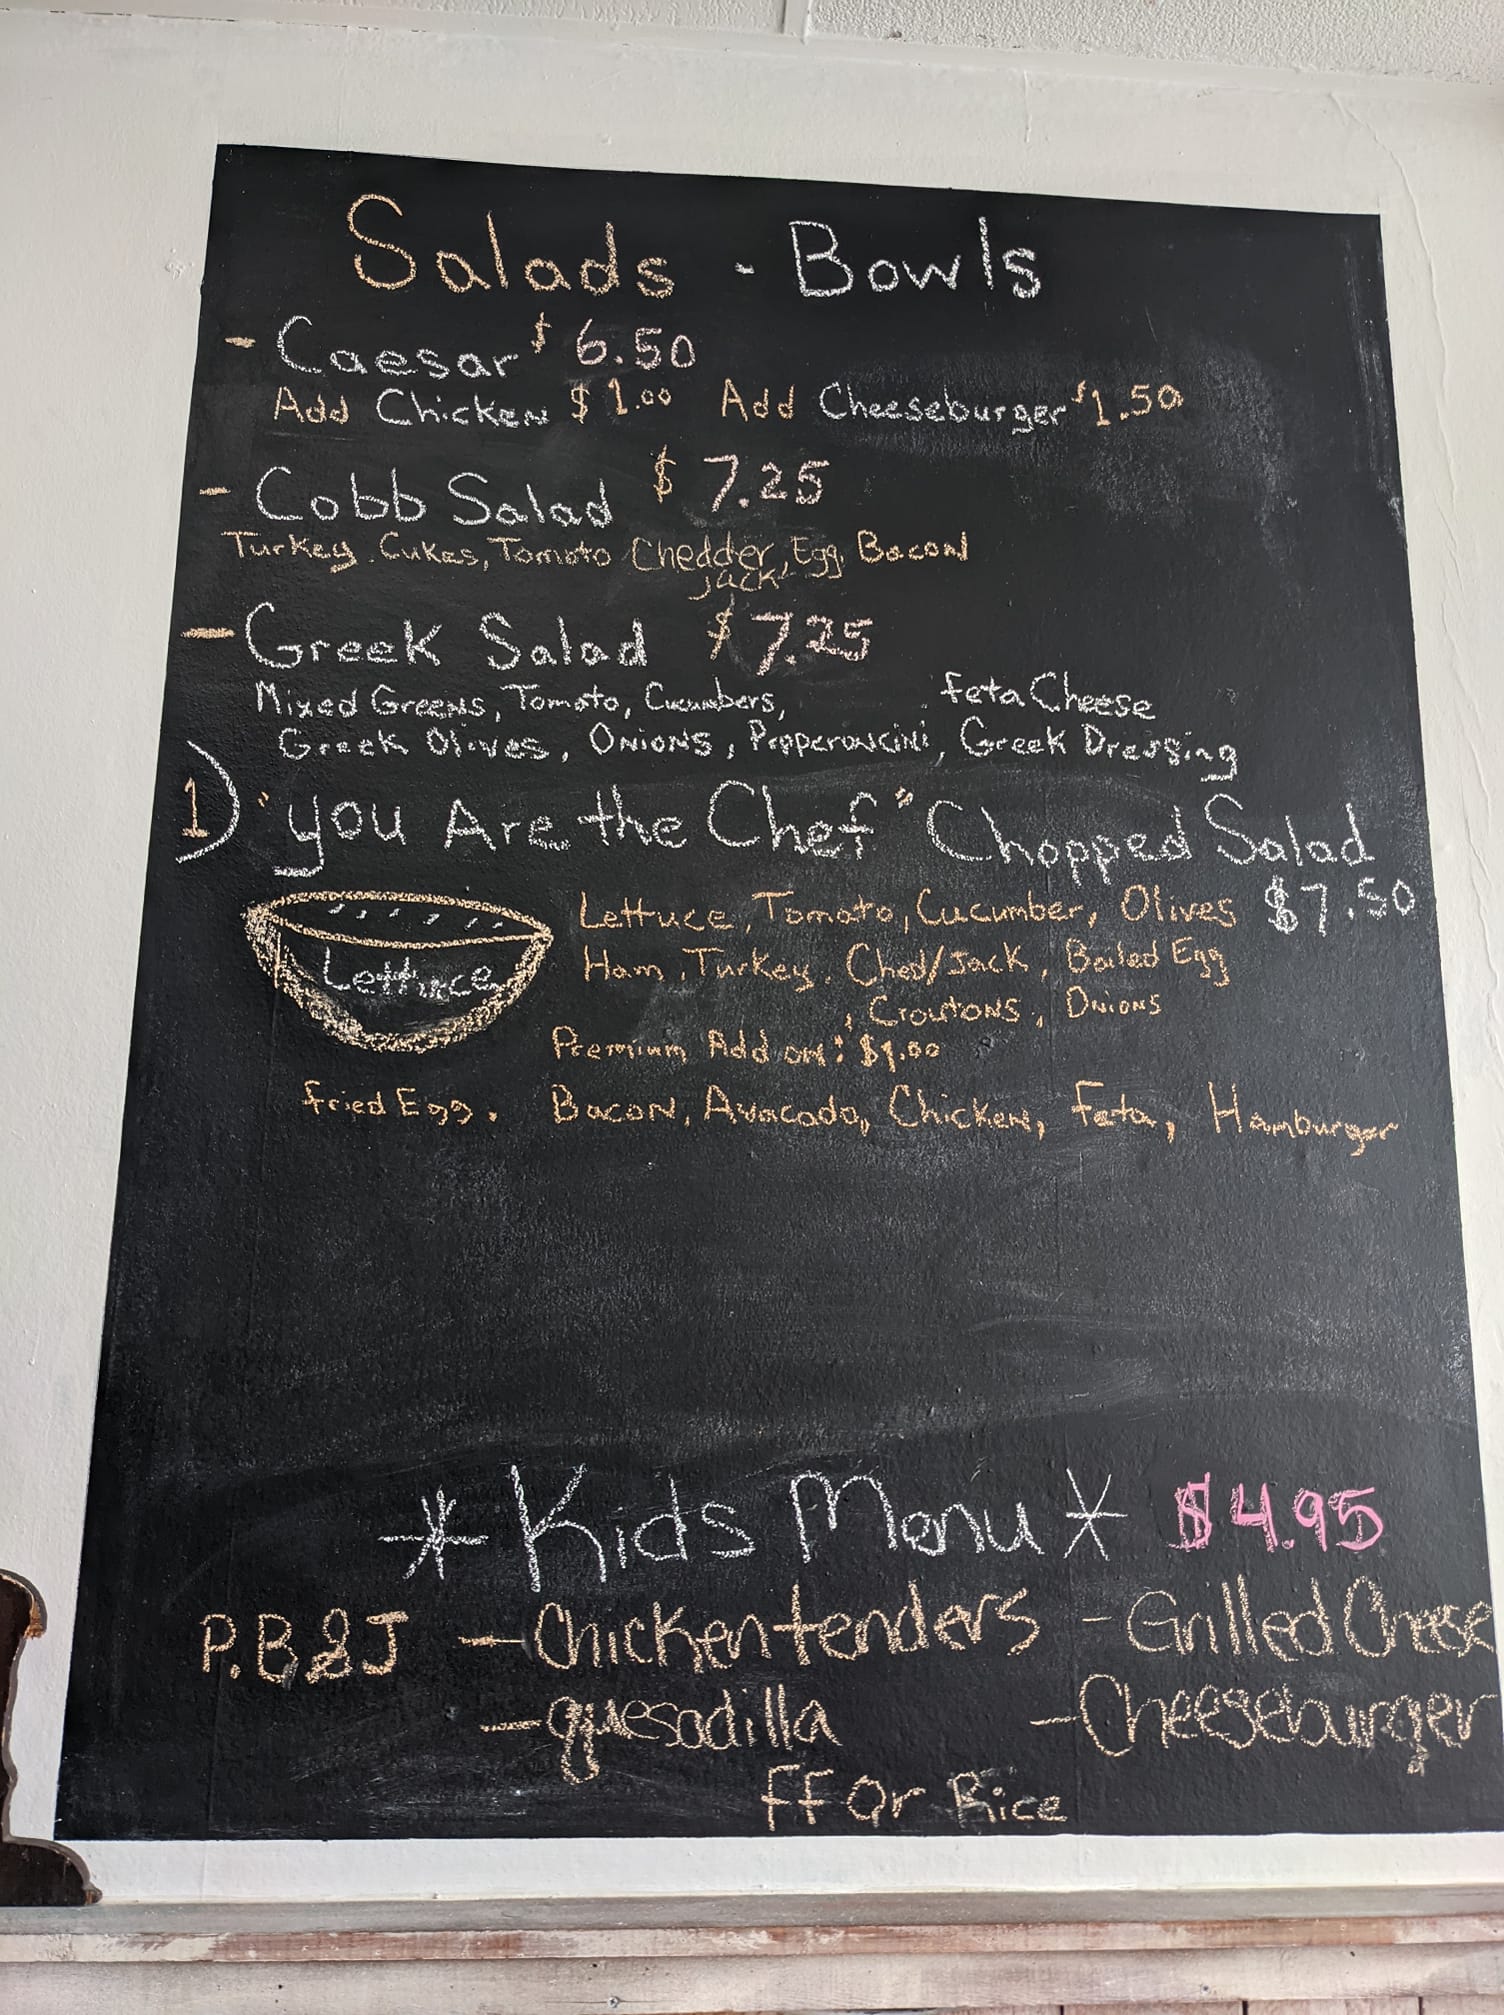 Salads - Bowls
- Caesar $ 6.50
Add Chicken $1.00 Add Cheeseburger $1.50
- Cobb Salad $ 7.25
Turkey, Cukes, Tomato Chedder, Egg, Bacon
Jack
- Greek Salad $ 7.25
Mixed Greens, Tomato, Cucumbers, Feta Cheese
Greek Olives, Onions, Pepperoncini, Greek Dressing
1) "you Are the Chef" Chopped Salad
$7.50
Lettuce, Tomato, Cucumber, Olives
Lettuce
Ham, Turkey, Ched/Jack, Boiled Egg
, Croutons, Onions
Premium Add on: $1.00
Fried Egg, Bacon, Avacado, Chicken, Feta, Hamburger
* Kids Menu * $4.95
P.B&J - Chicken tenders - Grilled Cheese
- quesadilla - Cheeseburger
FF or Rice